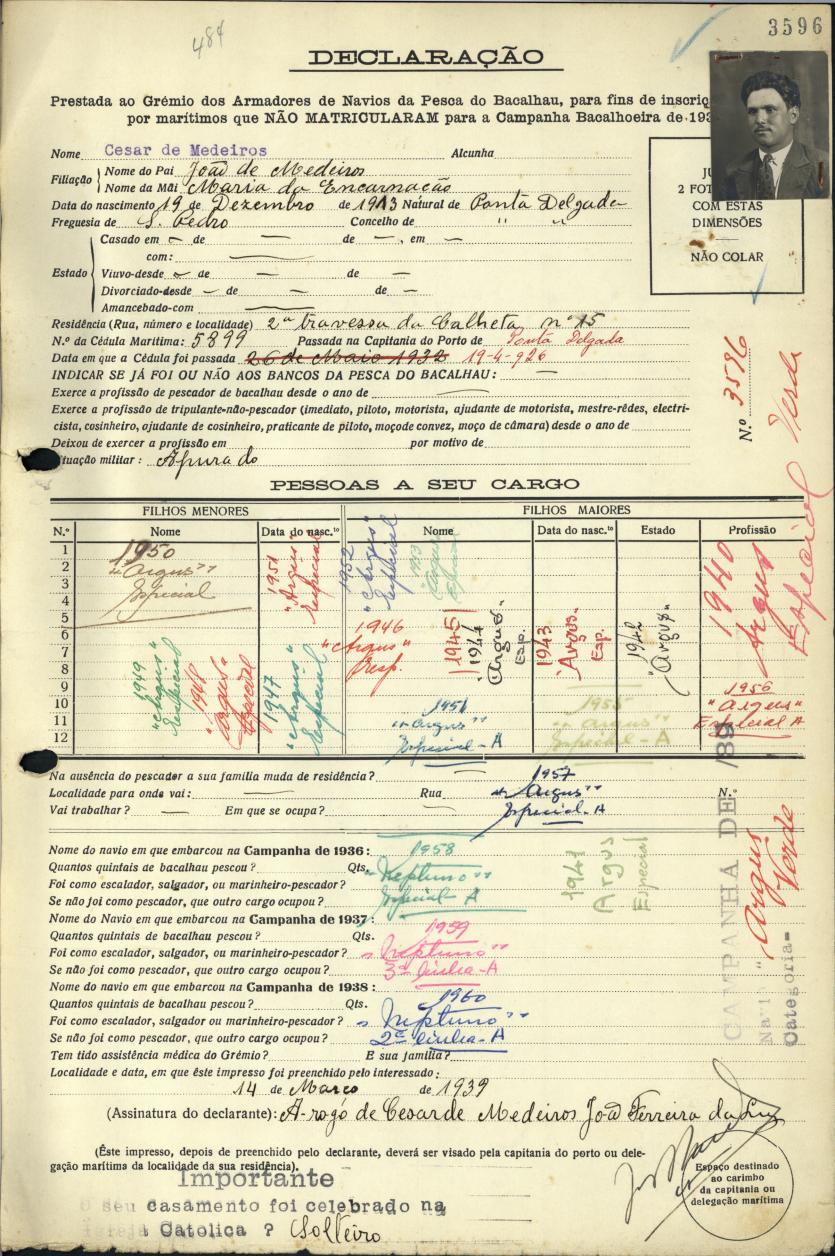 3596
484
DECLARAÇÃO
Prestada ao Grémio dos Armadores de Navios da Pesca do Bacalhau, para fins de inscriç
por marítimos que NÃO MATRICULARAM para a Campanha Bacalhoeira de 193
Nome Cesar de Medeiros Alcunha
Filiação
Nome do Pai João de Medeiros
Nome da Mãi Maria da Encarnação
Data do nascimento 19 de Dezembro de 1913 Natural de Ponta Delgada
Freguesia de S. Pedro Concelho de " "
JU
2 FOT
COM ESTAS
DIMENSÕES
NÃO COLAR
Estado
Casado em — de — de —, em —
com: —
Viuvo-desde — de — de —
Divorciado-desde — de — de —
Amancebado-com —
Residência (Rua, número e localidade) 2ª travessa da Calheta, nº 15
N.º da Cédula Marítima: 5899 Passada na Capitania do Porto de Ponta Delgada
Data em que a Cédula foi passada 26 de Maio 1932 19-4-926
INDICAR SE JÁ FOI OU NÃO AOS BANCOS DA PESCA DO BACALHAU: —
Exerce a profissão de pescador de bacalhau desde o ano de —
Exerce a profissão de tripulante-não-pescador (imediato, piloto, motorista, ajudante de motorista, mestre-rêdes, electri-
cista, cosinheiro, ajudante de cosinheiro, praticante de piloto, moço de convez, moço de câmara) desde o ano de
Deixou de exercer a profissão em por motivo de
ituação militar: Apurado
N.º 3596
Verde
Especial
PESSOAS A SEU CARGO
FILHOS MENORES FILHOS MAIORES
N.º Nome Data do nasc.to Nome Data do nasc.to Estado Profissão
1
2
3
4
5
6
7
8
9
10
11
12
1950
"Argus"
Especial
1951
"Argus"
Especial
1952
"Argus"
Especial
1953
Argus
Especial
1940
Argus
Especial
1949
"Argus"
Especial
1948
Argus
Especial
1947
"Argus"
Especial
1946
"Argus"
Esp.
1945
1944
Argus
Esp.
1943
"Argus"
Esp.
1942
"Argus"
"Argus"
Especial-A
1955
"Argus"
Especial-A
1956
"Argus"
Especial A
Na ausência do pescador a sua família muda de residência? —
Localidade para onde vai: — Rua N.º
Vai trabalhar? — Em que se ocupa? —
1957
"Argus"
Especial-A
Nome do navio em que embarcou na Campanha de 1936:
Quantos quintais de bacalhau pescou? Qts.
Foi como escalador, salgador, ou marinheiro-pescador?
Se não foi como pescador, que outro cargo ocupou?
1958
"Neptuno"
Especial-A
1941
Argus
Especial
Nome do Navio em que embarcou na Campanha de 1937:
Quantos quintais de bacalhau pescou? Qts.
Foi como escalador, salgador, ou marinheiro-pescador?
Se não foi como pescador, que outro cargo ocupou?
1959
"Neptuno"
3ª linha-A
Nome do navio em que embarcou na Campanha de 1938:
Quantos quintais de bacalhau pescou? Qts.
Foi como escalador, salgador ou marinheiro-pescador?
Se não foi como pescador, que outro cargo ocupou?
1960
"Neptuno"
2ª linha-A
CAMPANHA DE /39
Navio "Argus
Categoria- Verde
Tem tido assistência médica do Grémio? E sua família?
Localidade e data, em que êste impresso foi preenchido pelo interessado:
14 de Março de 1939
(Assinatura do declarante): A-rogó de Cesar de Medeiros João Ferreira da Luz
(Êste impresso, depois de preenchido pelo declarante, deverá ser visado pela capitania do porto ou dele-
gação marítima da localidade da sua residência).
Espaço destinado
ao carimbo
da capitania ou
delegação marítima
Importante
O seu casamento foi celebrado na
Igreja Catolica? Solteiro